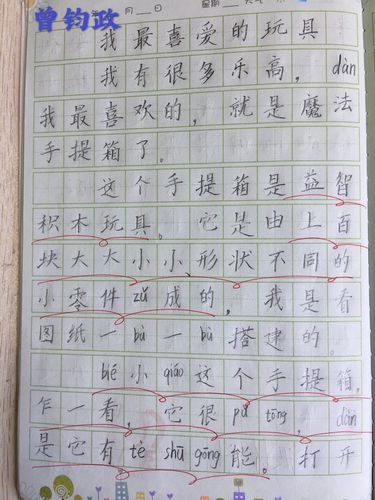 曾钧政
月 日 星期
我最喜爱的玩具
我有很多乐高，dàn
我最喜欢的，就是魔法
手提箱了。
这个手提箱是益智
积木玩具。它是由上百
块大大小小、形状不同的
小零件zǔ成的，我是看
图纸一bù一bù搭建的。
bié小qiáo这个手提箱，
乍一看，它很pǔ tōng，dàn
是它有tè shū gōng能。打开